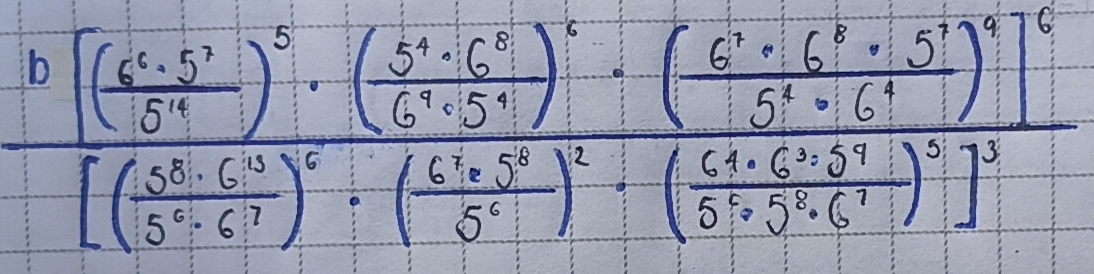 b [(6⁶·5⁷ / 5¹⁴)⁵ · (5⁴·6⁸ / 6⁹·5⁴)⁶ · (6⁷·6⁸·5⁷ / 5⁴·6⁴)⁹]⁶
[(5⁸·6¹³ / 5⁶·6⁷)⁶ · (6⁷·5⁸ / 5⁶)² · (6⁴·6³·5⁹ / 5⁵·5⁸·6⁷)⁵]³